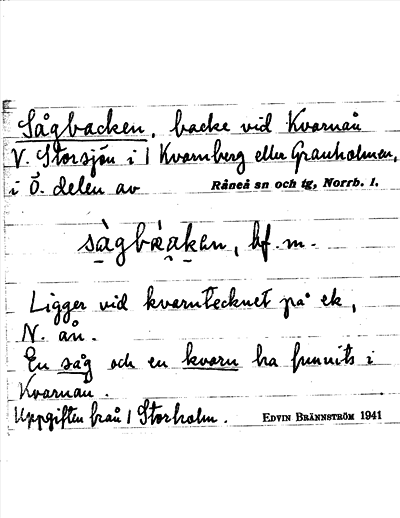 Sågbacken, backe vid Kvarnån
V. Storsjön i 1 Kvarnberg eller Granholmen,
i Ö. delen av Råneå sn och tg, Norrb. l.
sågbäaken, bf. m.
Ligger vid kvarntecknet på ek,
N. ån.
En såg och en kvarn ha funnits i
Kvarnån.
Uppgiften från 1 Storholm. EDVIN BRÄNNSTRÖM 1941